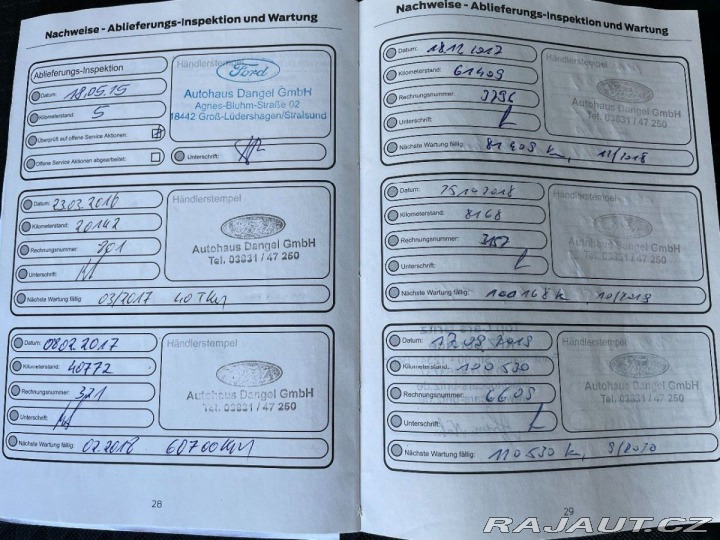 Nachweise - Ablieferungs-Inspektion und Wartung
Ablieferungs-Inspektion
Datum: 18.05.15
Kilometerstand: 5
Überprüft auf offene Service Aktionen:
Offene Service Aktionen abgearbeitet:
Händlerstempel
Ford
Autohaus Dangel GmbH
Agnes-Bluhm-Straße 02
18442 Groß-Lüdershagen/Stralsund
Unterschrift:
Datum: 23.03.2016
Kilometerstand: 20142
Rechnungsnummer: 701
Unterschrift:
Händlerstempel
Autohaus Dangel GmbH
Tel. 03831 / 47 250
Nächste Wartung fällig: 03/2017 40 TKm
Datum: 08.02.2017
Kilometerstand: 40772
Rechnungsnummer: 321
Unterschrift:
Händlerstempel
Autohaus Dangel GmbH
Tel. 03831 / 47 250
Nächste Wartung fällig: 02.2018 60700Km
28
Nachweise - Ablieferungs-Inspektion und Wartung
Datum: 18.12.2017
Kilometerstand: 61409
Rechnungsnummer: 3796
Unterschrift:
Händlerstempel
Autohaus Dangel GmbH
Tel. 03831 / 47 250
Nächste Wartung fällig: 81409 k,
Datum: 25.10.2018
Kilometerstand: 8168
Rechnungsnummer:
Unterschrift:
Händlerstempel
Autohaus Dangel GmbH
Tel. 03831 / 47 250
Nächste Wartung fällig: 100168 k, 10/2019
Datum:
Kilometerstand: 100530
Rechnungsnummer: 6609
Unterschrift:
Händlerstempel
Autohaus Dangel GmbH
Tel. 03831 / 47 250
Nächste Wartung fällig: 110530 k, 9/2020
29
RAJAUT.CZ